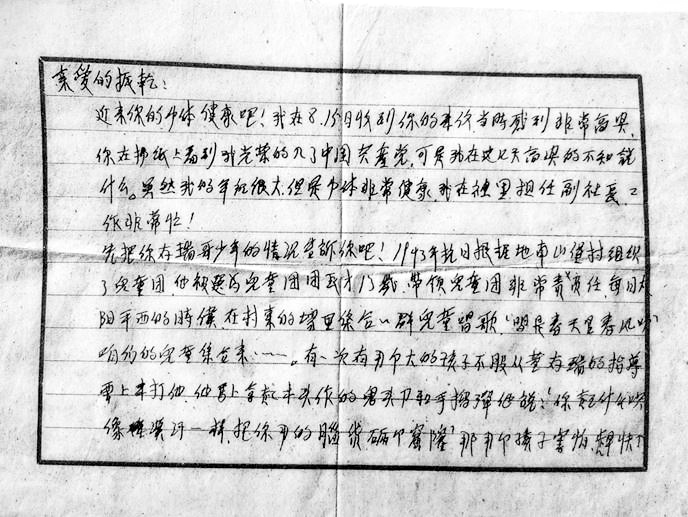 亲爱的振乾:
近来你的身体健康吧!我在8.15日收到你的来信当时感到非常高兴,
你在报纸上看到我光荣的入了中国共产党,可是我在这几天高兴的不知说
什么。虽然我的年纪很大,但是身体非常健康,我在社里担任副社长工
作非常忙!
先把你存瑞哥少年的情况告诉你吧!1943年抗日根据地南山堡村组织
了儿童团,他被选为儿童团团长才15岁,带领儿童团非常责任,每日太
阳平西的时候,在村东的场里集合一群儿童唱歌
咱们的儿童集合来……。有一次有两个大的孩子不服从董存瑞的指导
要上来打他,他马上拿起木头作的 和手榴弹他说:你
像 一样把你 的脑袋砸个窟窿"那两个孩子害怕,赶快